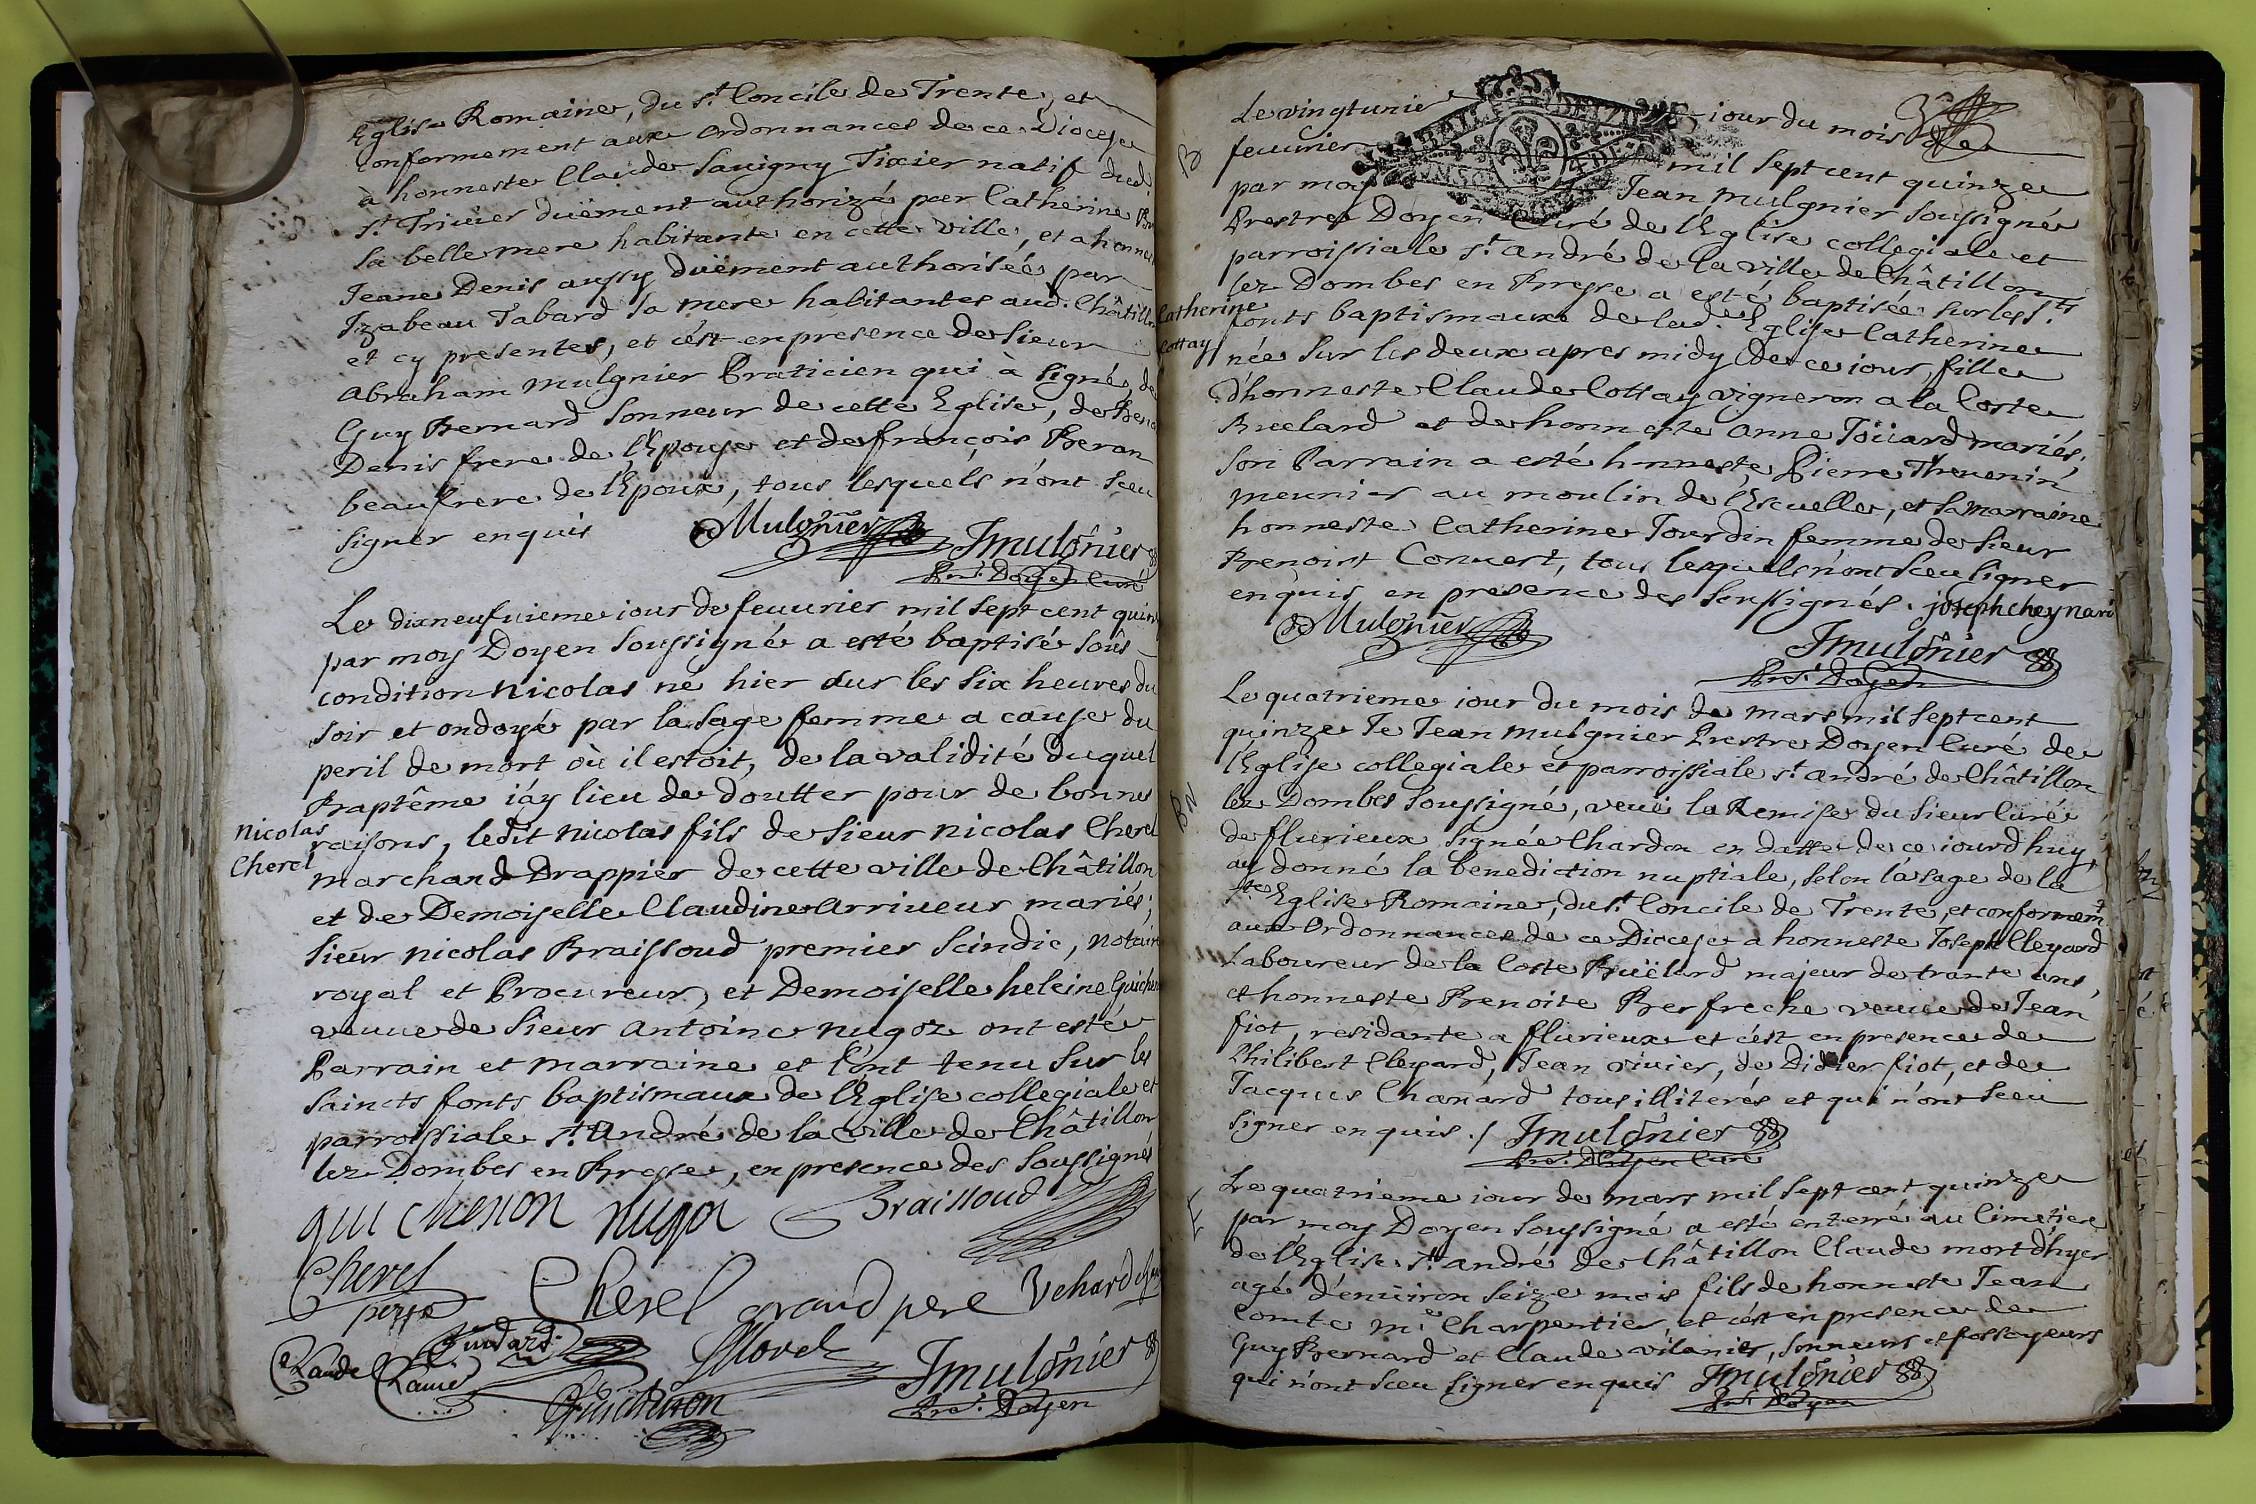 Eglise Romaine, du st. Concile de Trente, et
conformement aux ordonnances de ce Diocese
à honneste Claude Sauigny Tixier natif dud.
st. Triuier duëment authorizé par Catherine
sa belle mere habitante en cette ville, et a honneste
Jeane Denis aussy duëment authorisée par
Izabeau Tabard sa mere habitantes aud. Châtillon
et cy presentes, et c'est en presence de sieur
Abraham Mulgnier Praticien qui à signé, de
Guy Bernard sonneur de cette Eglise, de
Denis frere de l'Epouse et de françois Beran
beaufrere de l'Epoux, tous lesquels n'ont sceu
signer enquis
Mulgnier
Jmulgnier
Pre. Doyen Curé
Le dixneufuieme iour de feuurier mil sept cent
par moy Doyen soussigné a esté baptisé soûs
condition Nicolas né hier sur les six heures du
soir et ondoyé par la sage femme a cause du
peril de mort où il estoit, de la validité duquel
Baptême i'áy lieu de doutter pour de bonnes
Nicolas
Cherel
raisons, ledit Nicolas fils de sieur Nicolas Cherel
marchand Drappier de cette ville de Châtillon
et de Demoiselle Claudine Arriueur mariés;
sieur Nicolas Braissoud premier scindic, Notaire
royal et Procureur, et Demoiselle heleine
veuue de sieur Antoine Nugoz ont esté
Parrain et marraine et l'ont tenu sur les
saincts fonts baptismaux de l'Eglise collegiale et
parroissiale st. André de la ville de Châtillon
lez Dombes en Bresse, en presence des soussignés
guichenon nugoz Braissoud
Cherel
Cherel grand pere
Claude
Guichenon
Jmulgnier
Pre. Doyen
Le vingtunie iour du mois de
B
feuurier mil sept cent quinze
par moy Jean Mulgnier soussigné
Prestre Doyen Curé de l'Eglise collegiale et
parroissiale st. André de la ville de Châtillon
lez Dombes en Bresse a esté baptisée sur les sts.
Catherine
Cottay
fonts baptismaux de lad. Eglise Catherine
née sur les deux apres midy de ce iour, fille
d'honneste Claude Cottay vigneron a la Coste
Buelard et de honneste Anne Joüard mariés;
son Parrain a esté honneste Pierre Theuenin
meunier au moulin de l'Escuelle, et sa marraine
honneste Catherine Jourdin femme de sieur
Benoist Conuert, tous lesquels n'ont sceu signer
enquis en presence des soussignés. joseph cheynard
Mulgnier
Jmulgnier
Pre. Doyen
Le quatrieme iour du mois de mars mil sept cent
quinze Je Jean Mulgnier Prestre Doyen Curé de
l'Eglise collegiale et parroissiale st. André de Châtillon
BN
lez Dombes soussigné, veuë la Remise du sieur Curé
de flurieux signée Chardon en datte de ce iourd'huy,
ay donné la benediction nuptiale, selon l'úsage de la
ste. Eglise Romaine, du st. Concile de Trente, et conformemt.
aux Ordonnances de ce Diocese a honneste Joseph Cleyard
Laboureur de la Coste Buëlard majeur de trante ans,
et honneste Benoite Berfreche veuue de Jean
fiot, residante a flurieux et c'est en presence de
Philibert Cleyard, Jean viuier, de Didier fiot, et de
Jacques Chanard tous illiterés et qui n'ont sceu
signer enquis./ Jmulgnier
Pre. Doyen Curé
Le quatrieme iour de mars mil sept cent quinze
par moy Doyen soussigné a esté enterré au Cimetiere
de l'Eglise st. André de Châtillon Claude mort d'hyer
agé d'enuiron seize mois fils de honneste Jean
Comte me. Charpentier, et c'est en presence de
Guy Bernard et Claude vilanier, sonneurs et fossoyeurs
qui n'ont sceu signer enquis Jmulgnier
Pre. Doyen